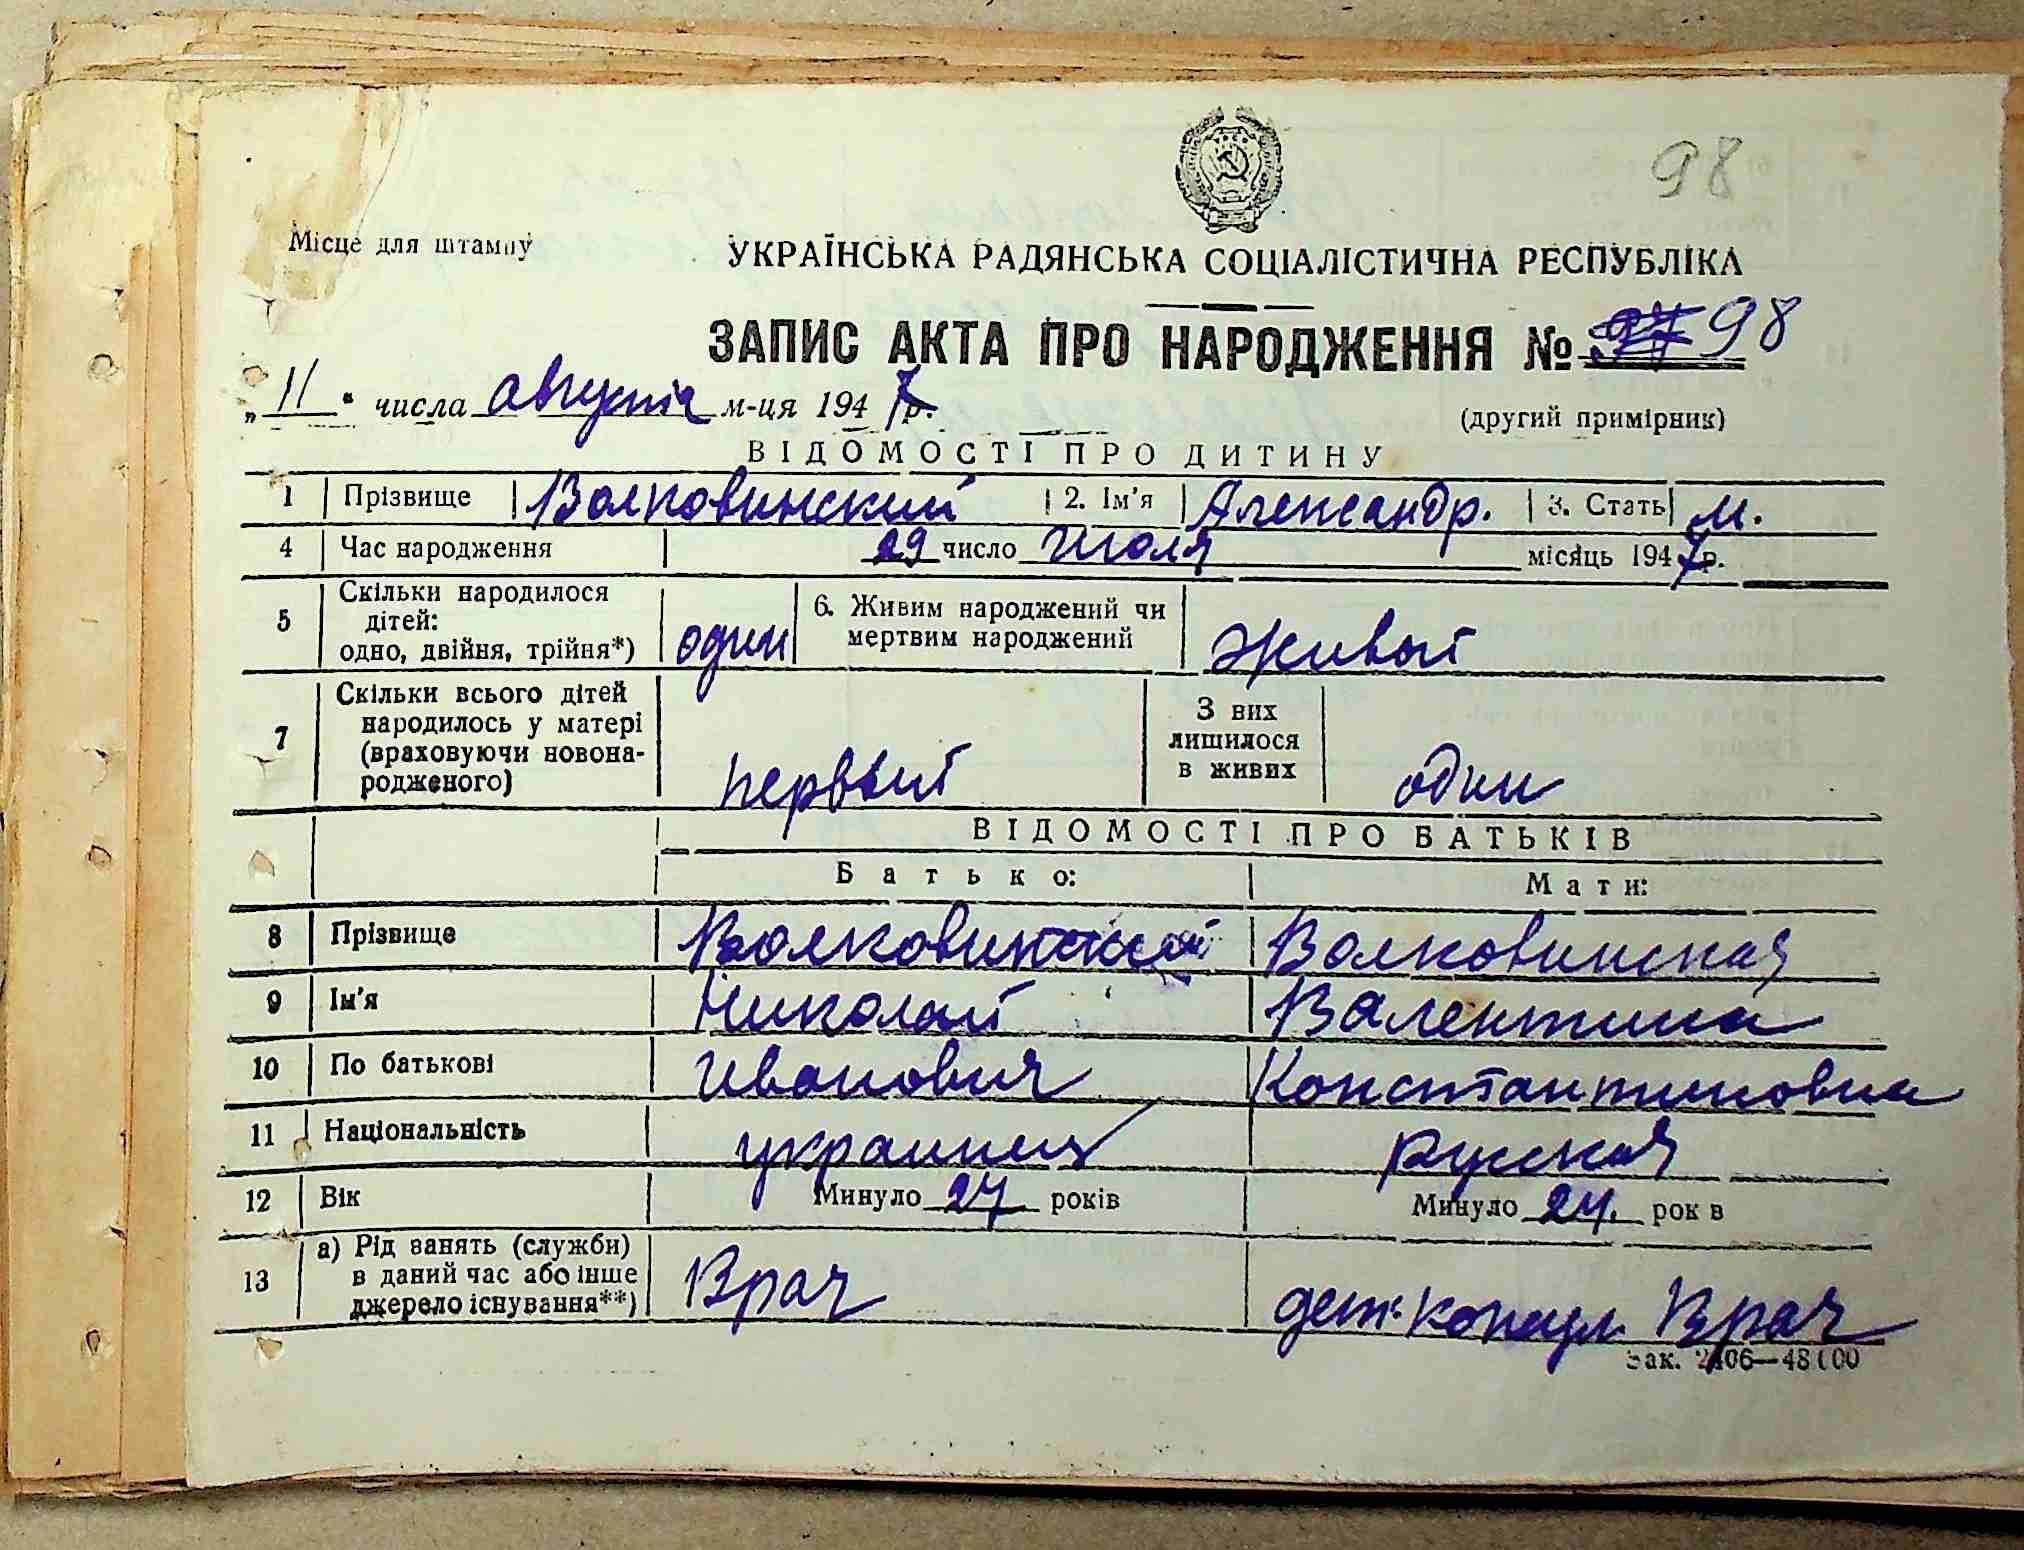 98
Місце для штампу
УКРАЇНСЬКА РАДЯНСЬКА СОЦІАЛІСТИЧНА РЕСПУБЛІКА
ЗАПИС АКТА ПРО НАРОДЖЕННЯ № 97 98
„11“ числа августа м-ця 1947 р.
(другий примірник)
ВІДОМОСТІ ПРО ДИТИНУ
1 Прізвище Волковинский 2. Ім'я Александр. 3. Стать м.
4 Час народження 29 число июля місяць 1947 р.
5 Скільки народилося дітей: одно, двійня, трійня*) один 6. Живим народжений чи мертвим народжений живой
7 Скільки всього дітей народилось у матері (враховуючи новонародженого) первый З них лишилося в живих один
ВІДОМОСТІ ПРО БАТЬКІВ
Батько: Мати:
8 Прізвище Волковинский Волковинская
9 Ім'я Николай Валентина
10 По батькові Иванович Константиновна
11 Національність украинец русская
12 Вік Минуло 27 років Минуло 24. рок в
13 а) Рід занять (служби) в даний час або інше джерело існування**) Врач дет. консул. Врач
Зак. 2406—48000